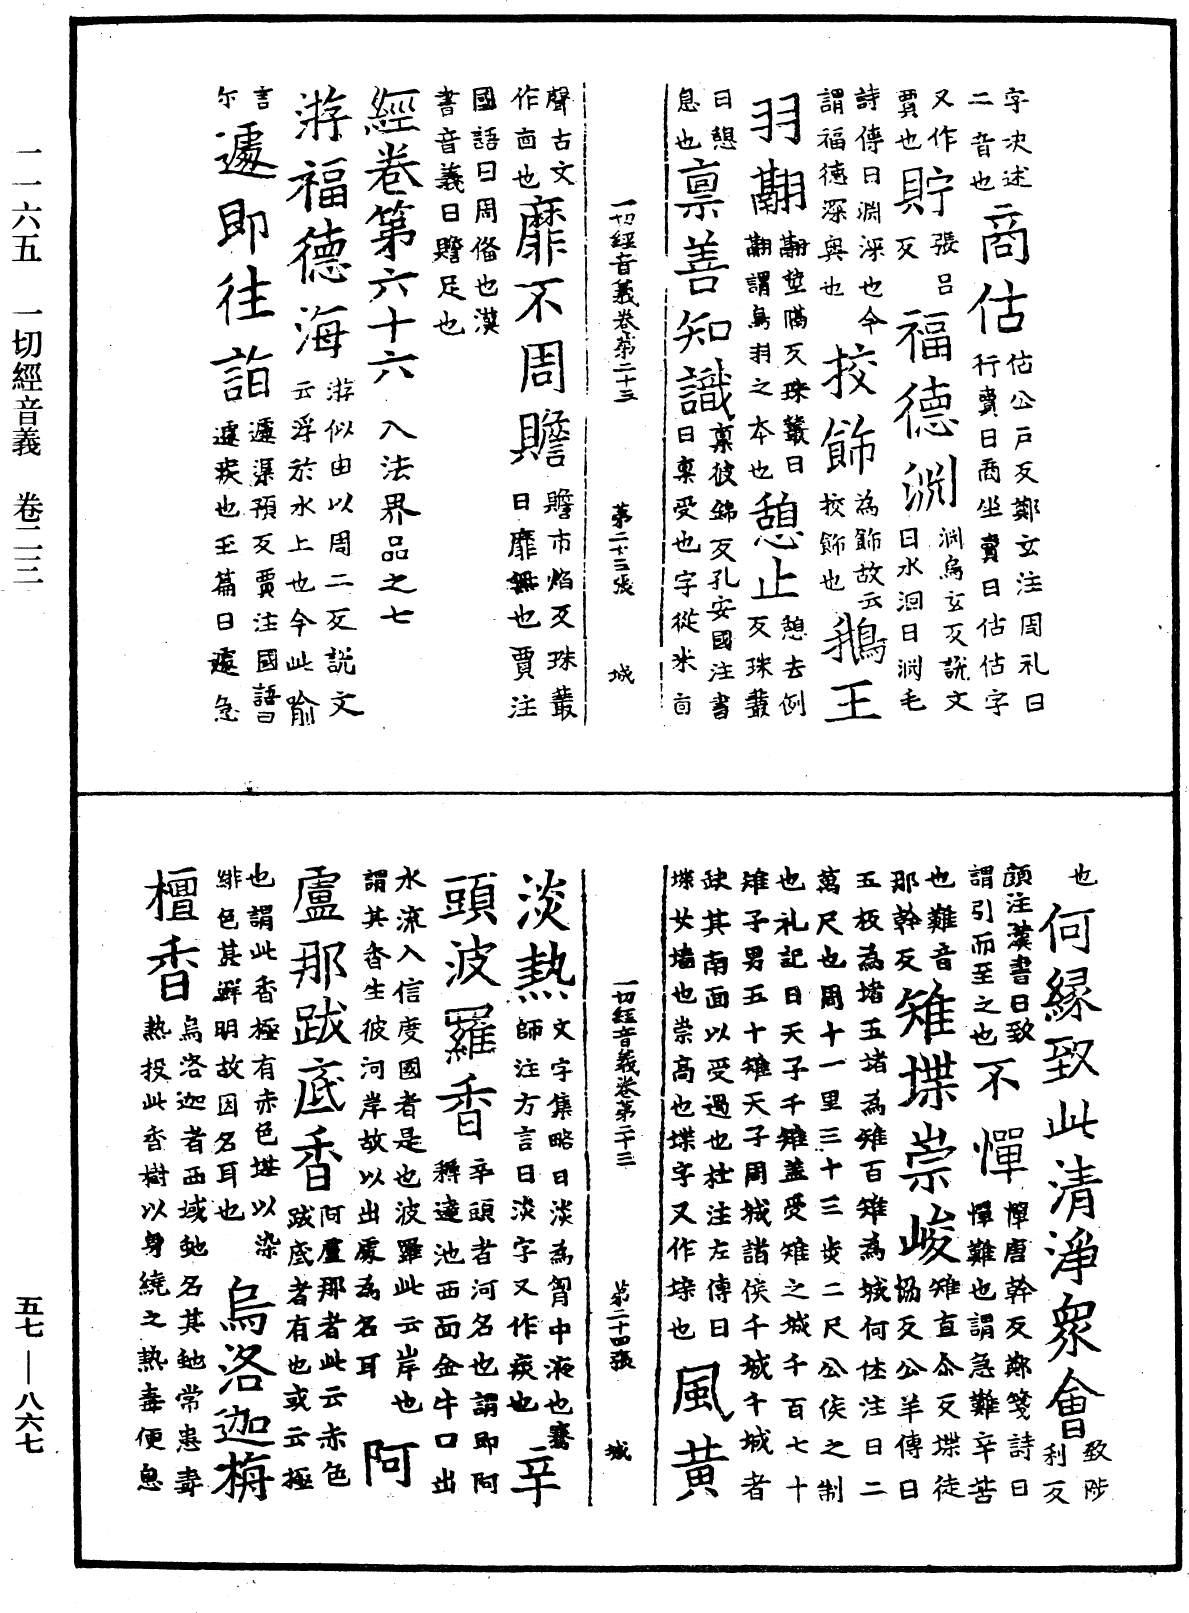 一一六五　一切經音義　卷二三
五七—八六七
字决述二音也商估估公戶反鄭玄注周礼曰行賣曰商坐賣曰估估字
又作賈也貯張呂反福德淵淵烏玄反說文曰水洄曰淵毛
詩傳曰淵深也今謂福德深奥也挍飾為飾故云挍飾也鵝王
羽翮翮莖隔反珠叢曰翮謂鳥羽之本也憩止憩去例反珠叢
曰憩息也禀善知識禀彼錦反孔安國注書曰禀受也字從米㐭
一切經音義卷第二十三　第二十三張　城
聲古文作㐭也靡不周贍贍市焰反珠叢曰靡無也賈注
國語曰周俻也漢書音義曰贍足也
經卷第六十六　入法界品之七
游福德海游似由以周二反說文云浮於水上也今此喻
言尒遽即往詣遽渠預反賈注國語曰遽疾也玉篇曰遽急
也何緣致此清淨衆會致陟利反
顔注漢書曰致謂引而至之也不憚憚唐幹反鄭箋詩曰憚難也謂急難辛苦
也難音那幹反雉堞崇峻雉直尒反堞徒恊反公羊傳曰
五板為堵五堵為雉百雉為城何休注曰二萬尺也周十一里三十三步二尺公侯之制
也礼記曰天子千雉盖受雉之城千百七十雉子男五十雉天子周城諸侯千城千城者
缺其南面以受過也杜注左傳曰堞女墻也崇高也堞字又作㙛也風黄
一切經音義卷第二十三　第二十四張　城
淡熱文字集略曰淡為胷中液也騫師注方言曰淡字又作痰也辛
頭波羅香辛頭者河名也謂即阿耨達池西面金牛口出
水流入信度國者是也波羅此云岸也謂其香生彼河岸故以出處為名耳阿
盧那跋底香阿盧那者此云赤色跋底者有也或云極
也謂此香極有赤色堪以染緋色其鮮明故因名耳也烏洛迦栴
檀香烏洛迦者西域虵名其虵常患毒熱投此香樹以身繞之熱毒便息